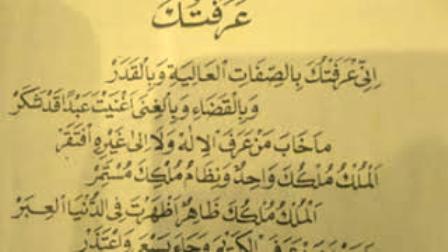 عَرَفْتُكَ
إِنِّي عَرَفْتُكَ بِالصِّفَاتِ العَالِيَةِ وَبِالْقَدَرْ
وَبِالْقَضَاءِ وَبِالْغِنَى أَغْنَيْتَ عَبْدًا قَدْ شَكَرْ
مَا خَابَ مَنْ عَرَفَ الإِلٰهَ وَلَا إِلَى غَيْرِهِ افْتَقَرْ
الْمُلْكُ مُلْكُكَ وَاحِدٌ وَنِظَامُ مُلْكِكَ مُسْتَمِرّْ
الْمُلْكُ مُلْكُكَ ظَاهِرٌ أَظْهَرْتَ فِي الدُّنْيَا العِبَرْ
وَجَاءَ يَسْعَى وَاعْتَذَرْ